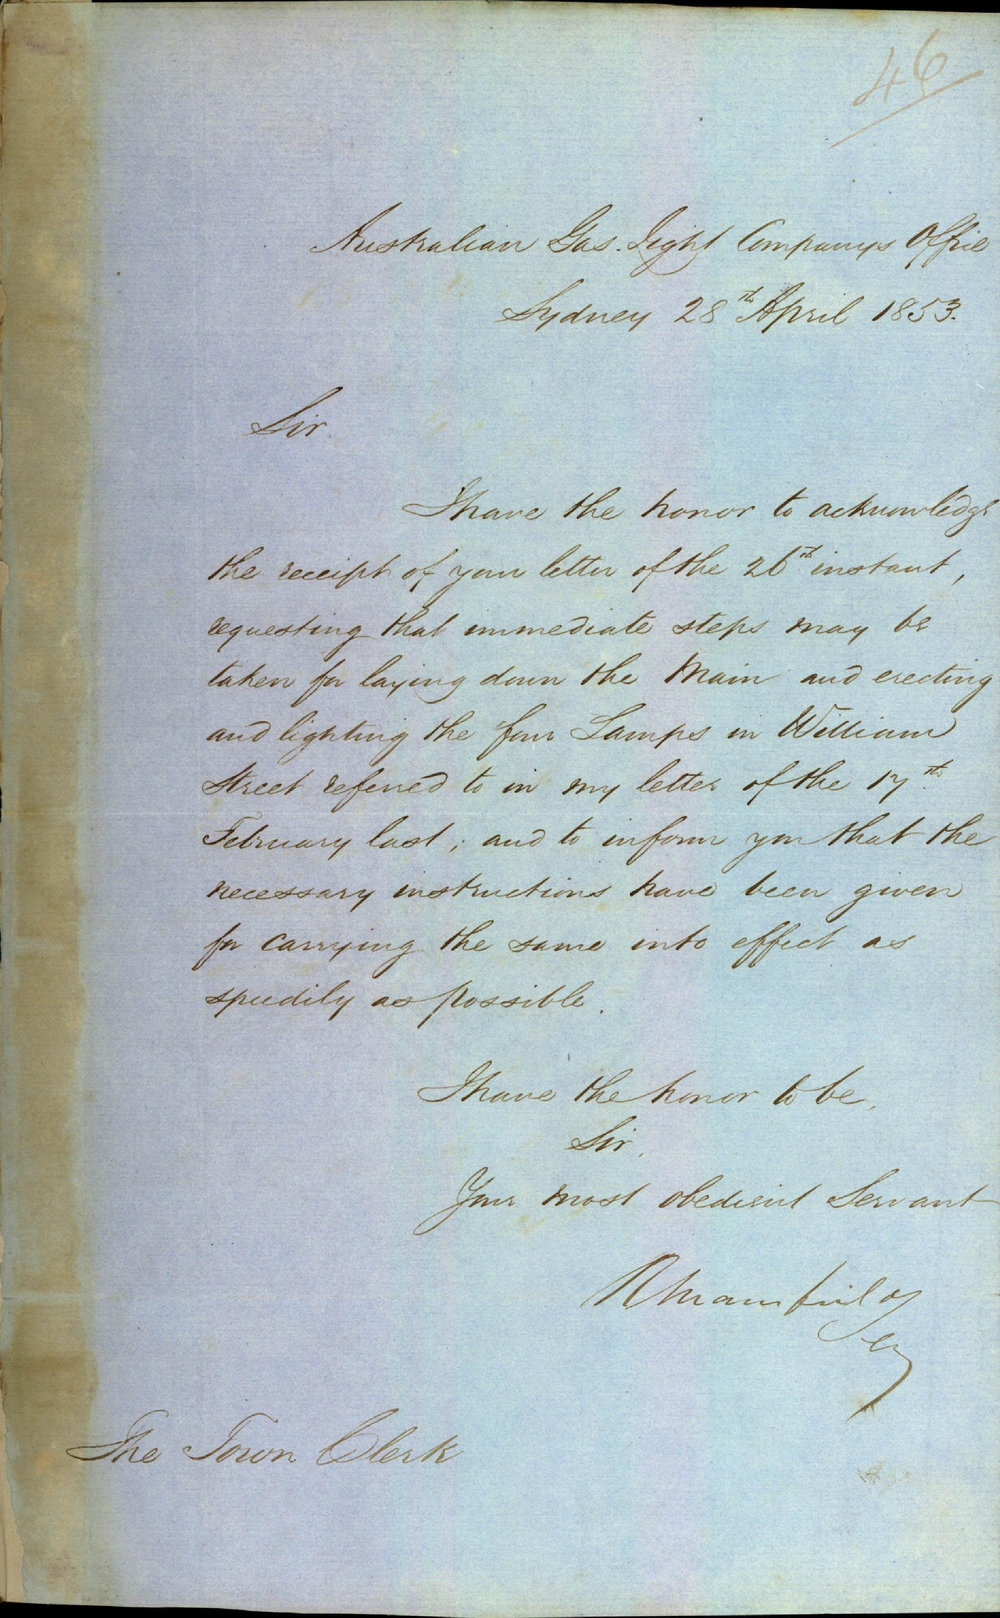 46
Australian Gas Light Companys Office
Sydney 28th April 1853.
Sir
I have the honor to acknowledge
the receipt of your letter of the 26th instant,
requesting that immediate steps may be
taken for laying down the Main and erecting
and lighting the four Lamps in William
Street referred to in my letter of the 17th
February last; and to inform you that the
necessary instructions have been given
for carrying the same into effect as
speedily as possible.
I have the honor to be,
Sir,
Your most obedient Servant
R Mansfield
The Town Clerk